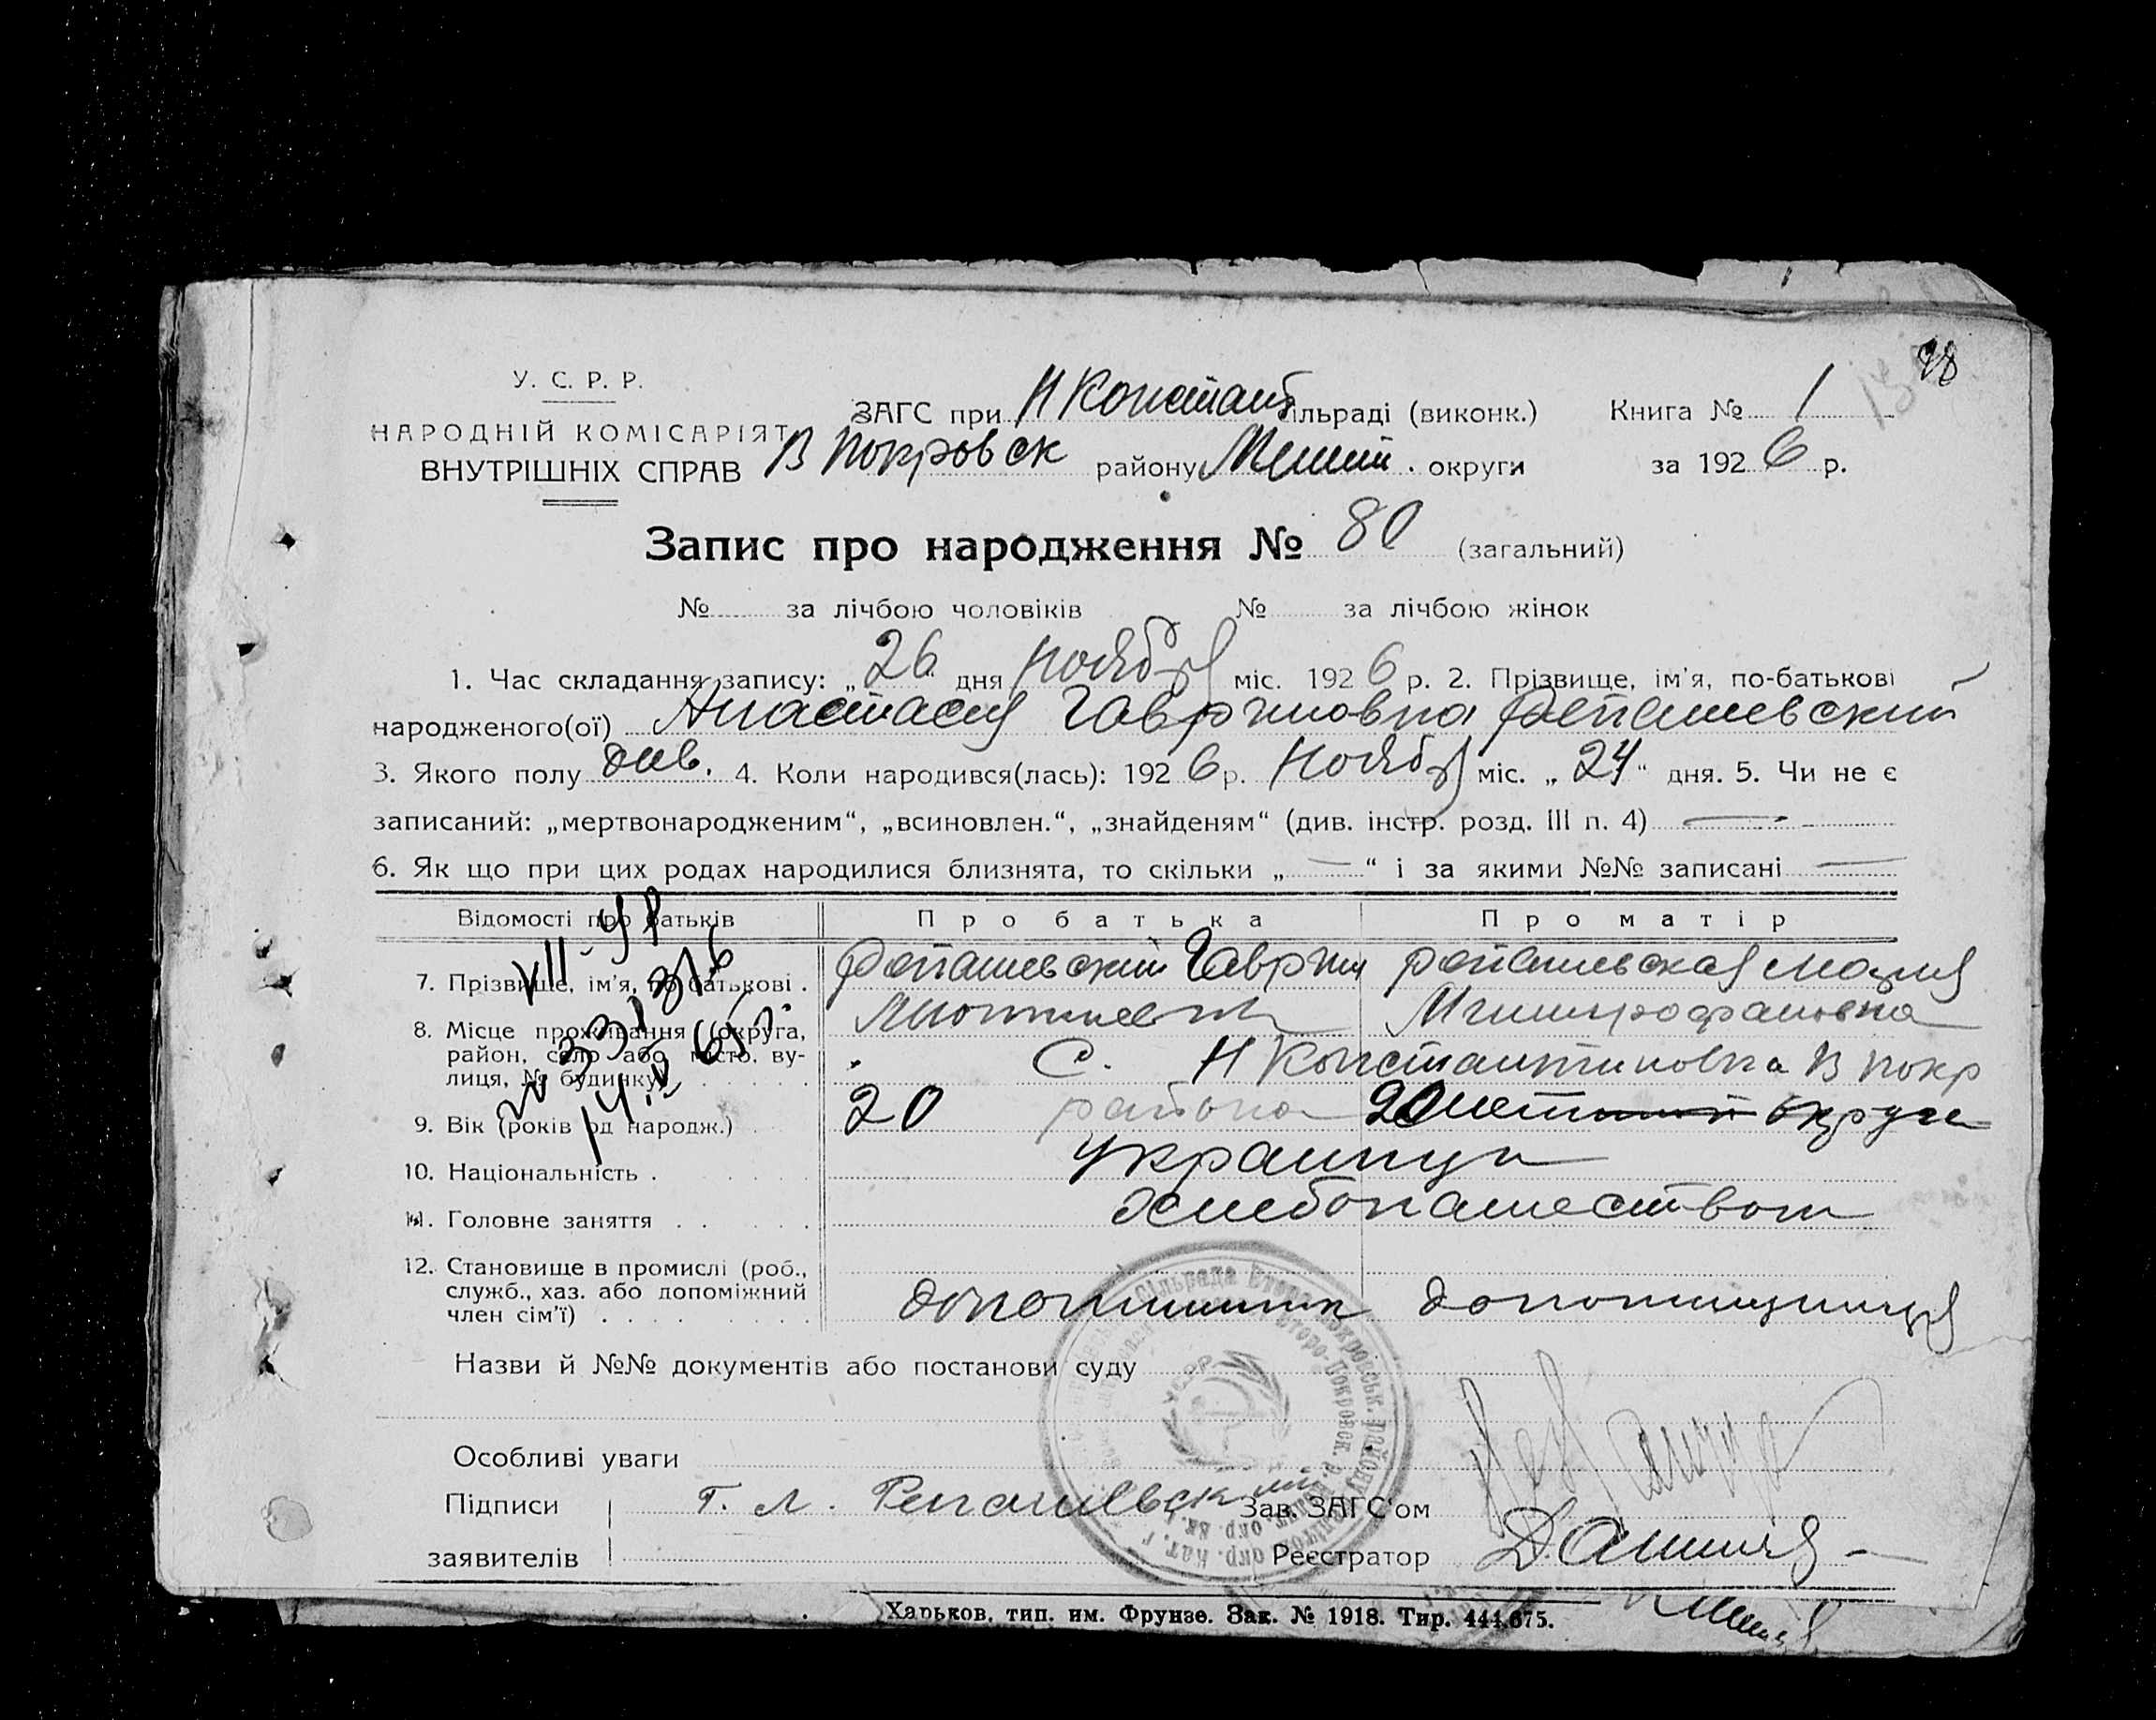 98
У. С. Р. Р.
НАРОДНІЙ КОМІСАРІЯТ
ВНУТРІШНІХ СПРАВ
ЗАГС при Н Констант сільраді (виконк.) Книга № 1
В Покровск району Мелит. округи за 1926 р.
Запис про народження № 80 (загальний)
№ за лічбою чоловіків № за лічбою жінок
1. Час складання запису: „26“ дня ноября міс. 1926 р. 2. Прізвище, ім'я, по-батькові
народженого(ої) Анастасия Гавриловна Репашевский
3. Якого полу див. 4. Коли народився(лась): 1926 р. Ноября міс. „24“ дня. 5. Чи не є
записаний: „мертвонародженим“, „всиновлен.“, „знайденям“ (див. інстр. розд. III п. 4) —
6. Як що при цих родах народилися близнята, то скільки „—“ і за якими №№ записані —
Відомості про батьків Про батька Про матір
7. Прізвище, ім'я, по батькові. Репашевский Гаврил Репашевская Мария
Митрофановна
8. Місце проживання (округа,
район, село або місто. ву-
лиця, № будинку) С. Н Константиновка В покр
района округи
9. Вік (років од народж.) 20 20
10. Національність . украинцы
11. Головне заняття хлебопашеством
12. Становище в промислі (роб.,
служб., хаз. або допоміжний
член сім'ї) допомишник допомищница
Назви й №№ документів або постанови суду
Особливі уваги
Підписи Г. Л. Репашевский Зав. ЗАГС'ом
заявителів Реєстратор
Харьков, тип. им. Фрунзе. Зак. № 1918. Тир. 444.675.